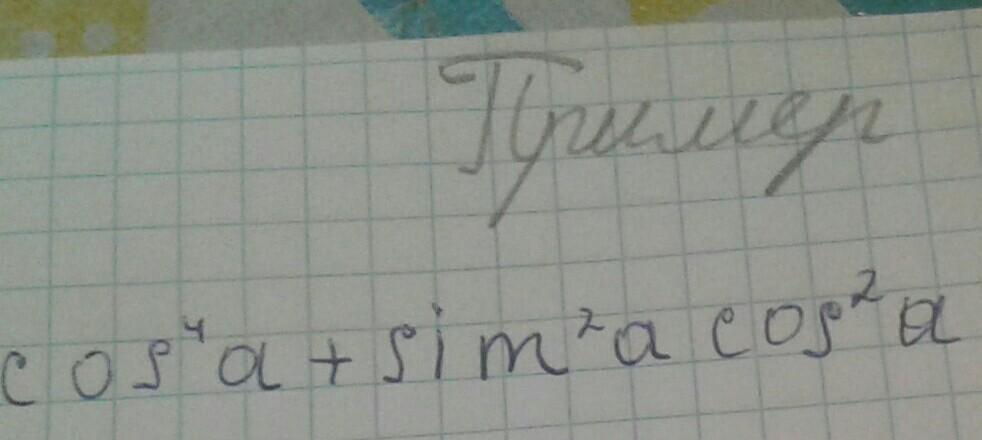 Пример
cos⁴a + sim²a cos²a